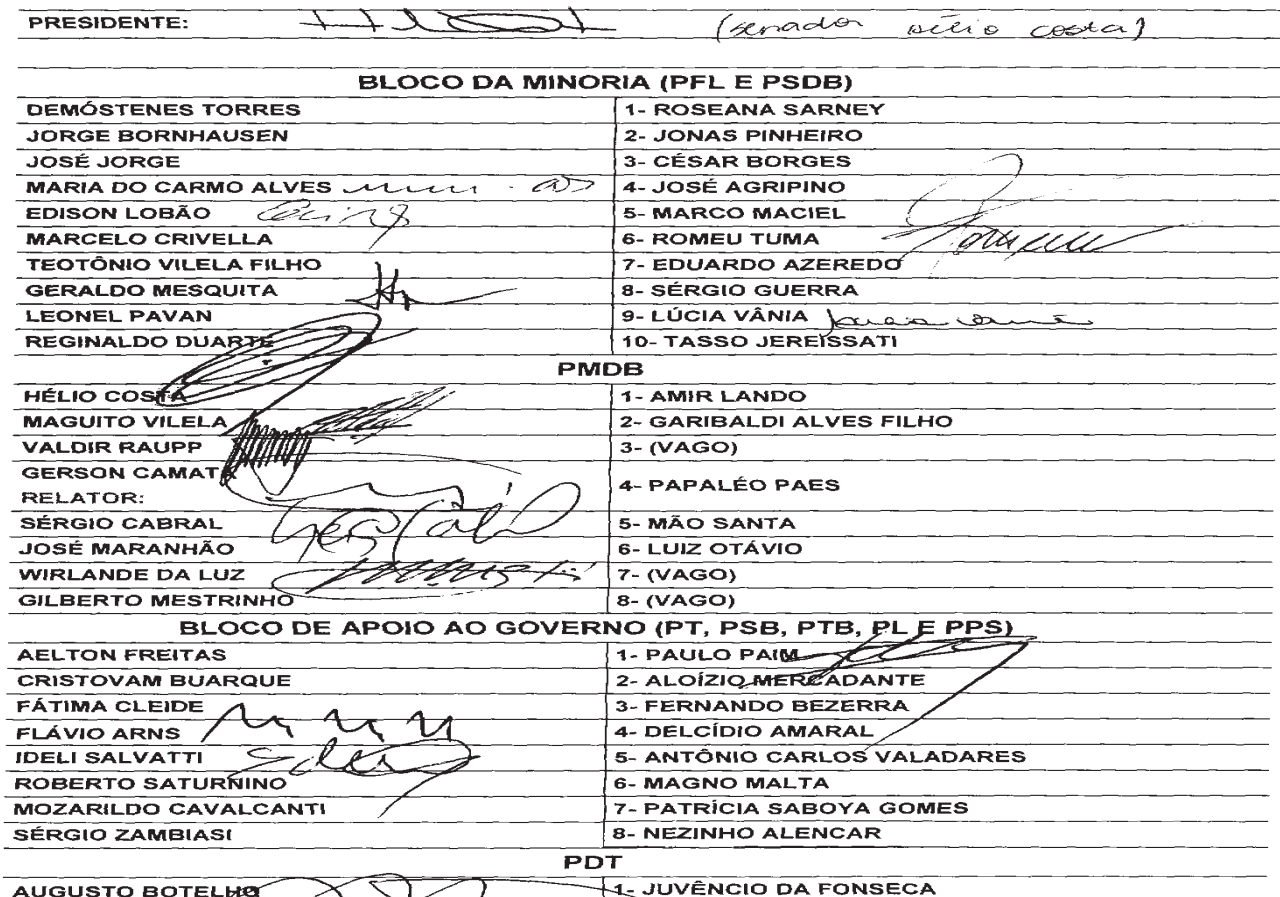 PRESIDENTE: (senador Hélio Costa)
BLOCO DA MINORIA (PFL E PSDB)
DEMÓSTENES TORRES 1- ROSEANA SARNEY
JORGE BORNHAUSEN 2- JONAS PINHEIRO
JOSÉ JORGE 3- CÉSAR BORGES
MARIA DO CARMO ALVES 4- JOSÉ AGRIPINO
EDISON LOBÃO 5- MARCO MACIEL
MARCELO CRIVELLA 6- ROMEU TUMA
TEOTÔNIO VILELA FILHO 7- EDUARDO AZEREDO
GERALDO MESQUITA 8- SÉRGIO GUERRA
LEONEL PAVAN 9- LÚCIA VÂNIA
REGINALDO DUARTE 10- TASSO JEREISSATI
PMDB
HÉLIO COSTA 1- AMIR LANDO
MAGUITO VILELA 2- GARIBALDI ALVES FILHO
VALDIR RAUPP 3- (VAGO)
GERSON CAMATA
RELATOR: 4- PAPALÉO PAES
SÉRGIO CABRAL 5- MÃO SANTA
JOSÉ MARANHÃO 6- LUIZ OTÁVIO
WIRLANDE DA LUZ 7- (VAGO)
GILBERTO MESTRINHO 8- (VAGO)
BLOCO DE APOIO AO GOVERNO (PT, PSB, PTB, PL E PPS)
AELTON FREITAS 1- PAULO PAIM
CRISTOVAM BUARQUE 2- ALOÍZIO MERCADANTE
FÁTIMA CLEIDE 3- FERNANDO BEZERRA
FLÁVIO ARNS 4- DELCÍDIO AMARAL
IDELI SALVATTI 5- ANTÔNIO CARLOS VALADARES
ROBERTO SATURNINO 6- MAGNO MALTA
MOZARILDO CAVALCANTI 7- PATRÍCIA SABOYA GOMES
SÉRGIO ZAMBIASI 8- NEZINHO ALENCAR
PDT
AUGUSTO BOTELHO 1- JUVÊNCIO DA FONSECA